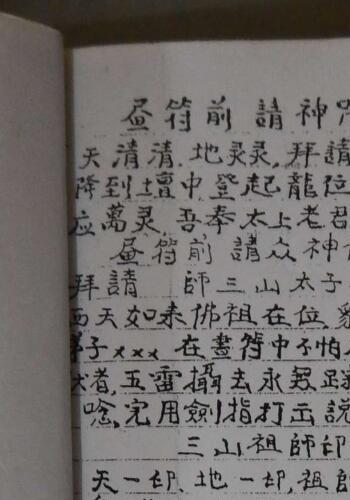 昼符前請神咒
天清清,地灵灵,拜請
降到壇中,登起龍位
应萬灵,吾奉太上老君
昼符前請众神
拜請 師三山太子
西天如来佛祖在位,
弟子xxx 在畫符中不怕
犬者,五雷攝去永無踪
唸完用劍指打出説
三山祖師印
天一印、地一印,祖師